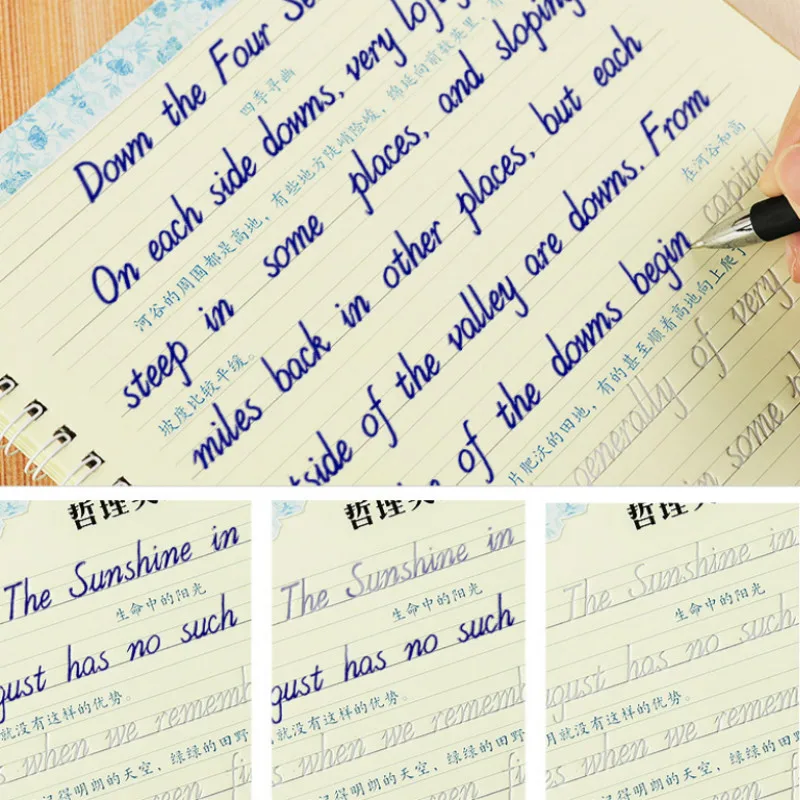 Down the Four
四季寻幽
On each side downs, very
河谷的周围都是高地，有些地方陡峭险峻，绵延向前数英里，
steep in some places, and sloping
坡度比较平缓。
miles back in other places, but each
在河谷和高
side of the valley are downs. From
of the downs begin capital
片肥沃的田地，有的甚至顺着高地向上爬
generally of very
in some
哲理
The Sunshine in
生命中的阳光
gust has no such
就没有这样的优势。
when we rememb
记得明朗的天空，绿绿的田野
哲理
The Sunshine in
生命中的阳光
gust has no such
就没有这样的优势。
when we rememb
记得明朗的天空，绿绿的田野
哲理
The Sunshine in
生命中的阳光
gust has no such
月就没有这样的优势。
when we remem
记得明朗的天空，绿绿的田